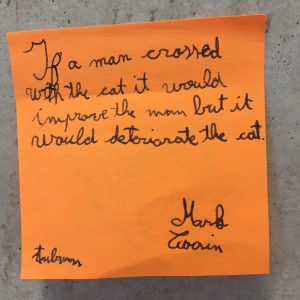 If a man crossed
with the cat it would
improve the man but it
would deteriorate the cat.
Mark
Twain